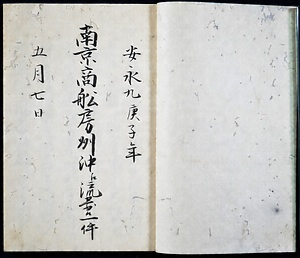 安永九庚子年
南京商舩房州沖ニ流一件
五月七日